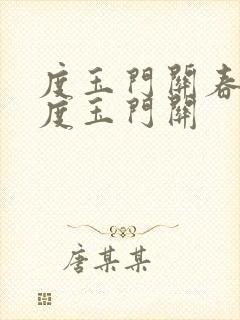 度玉門關春
度玉門關
唐某某